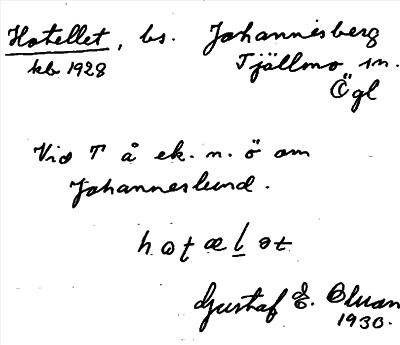 Hotellet, bs. Johannisberg
kb 1928 Tjällmo sn.
Ögl
Vid T å ek. n. ö om
Johanneslund.
hotælət
Gustaf E. Bluan
1930.